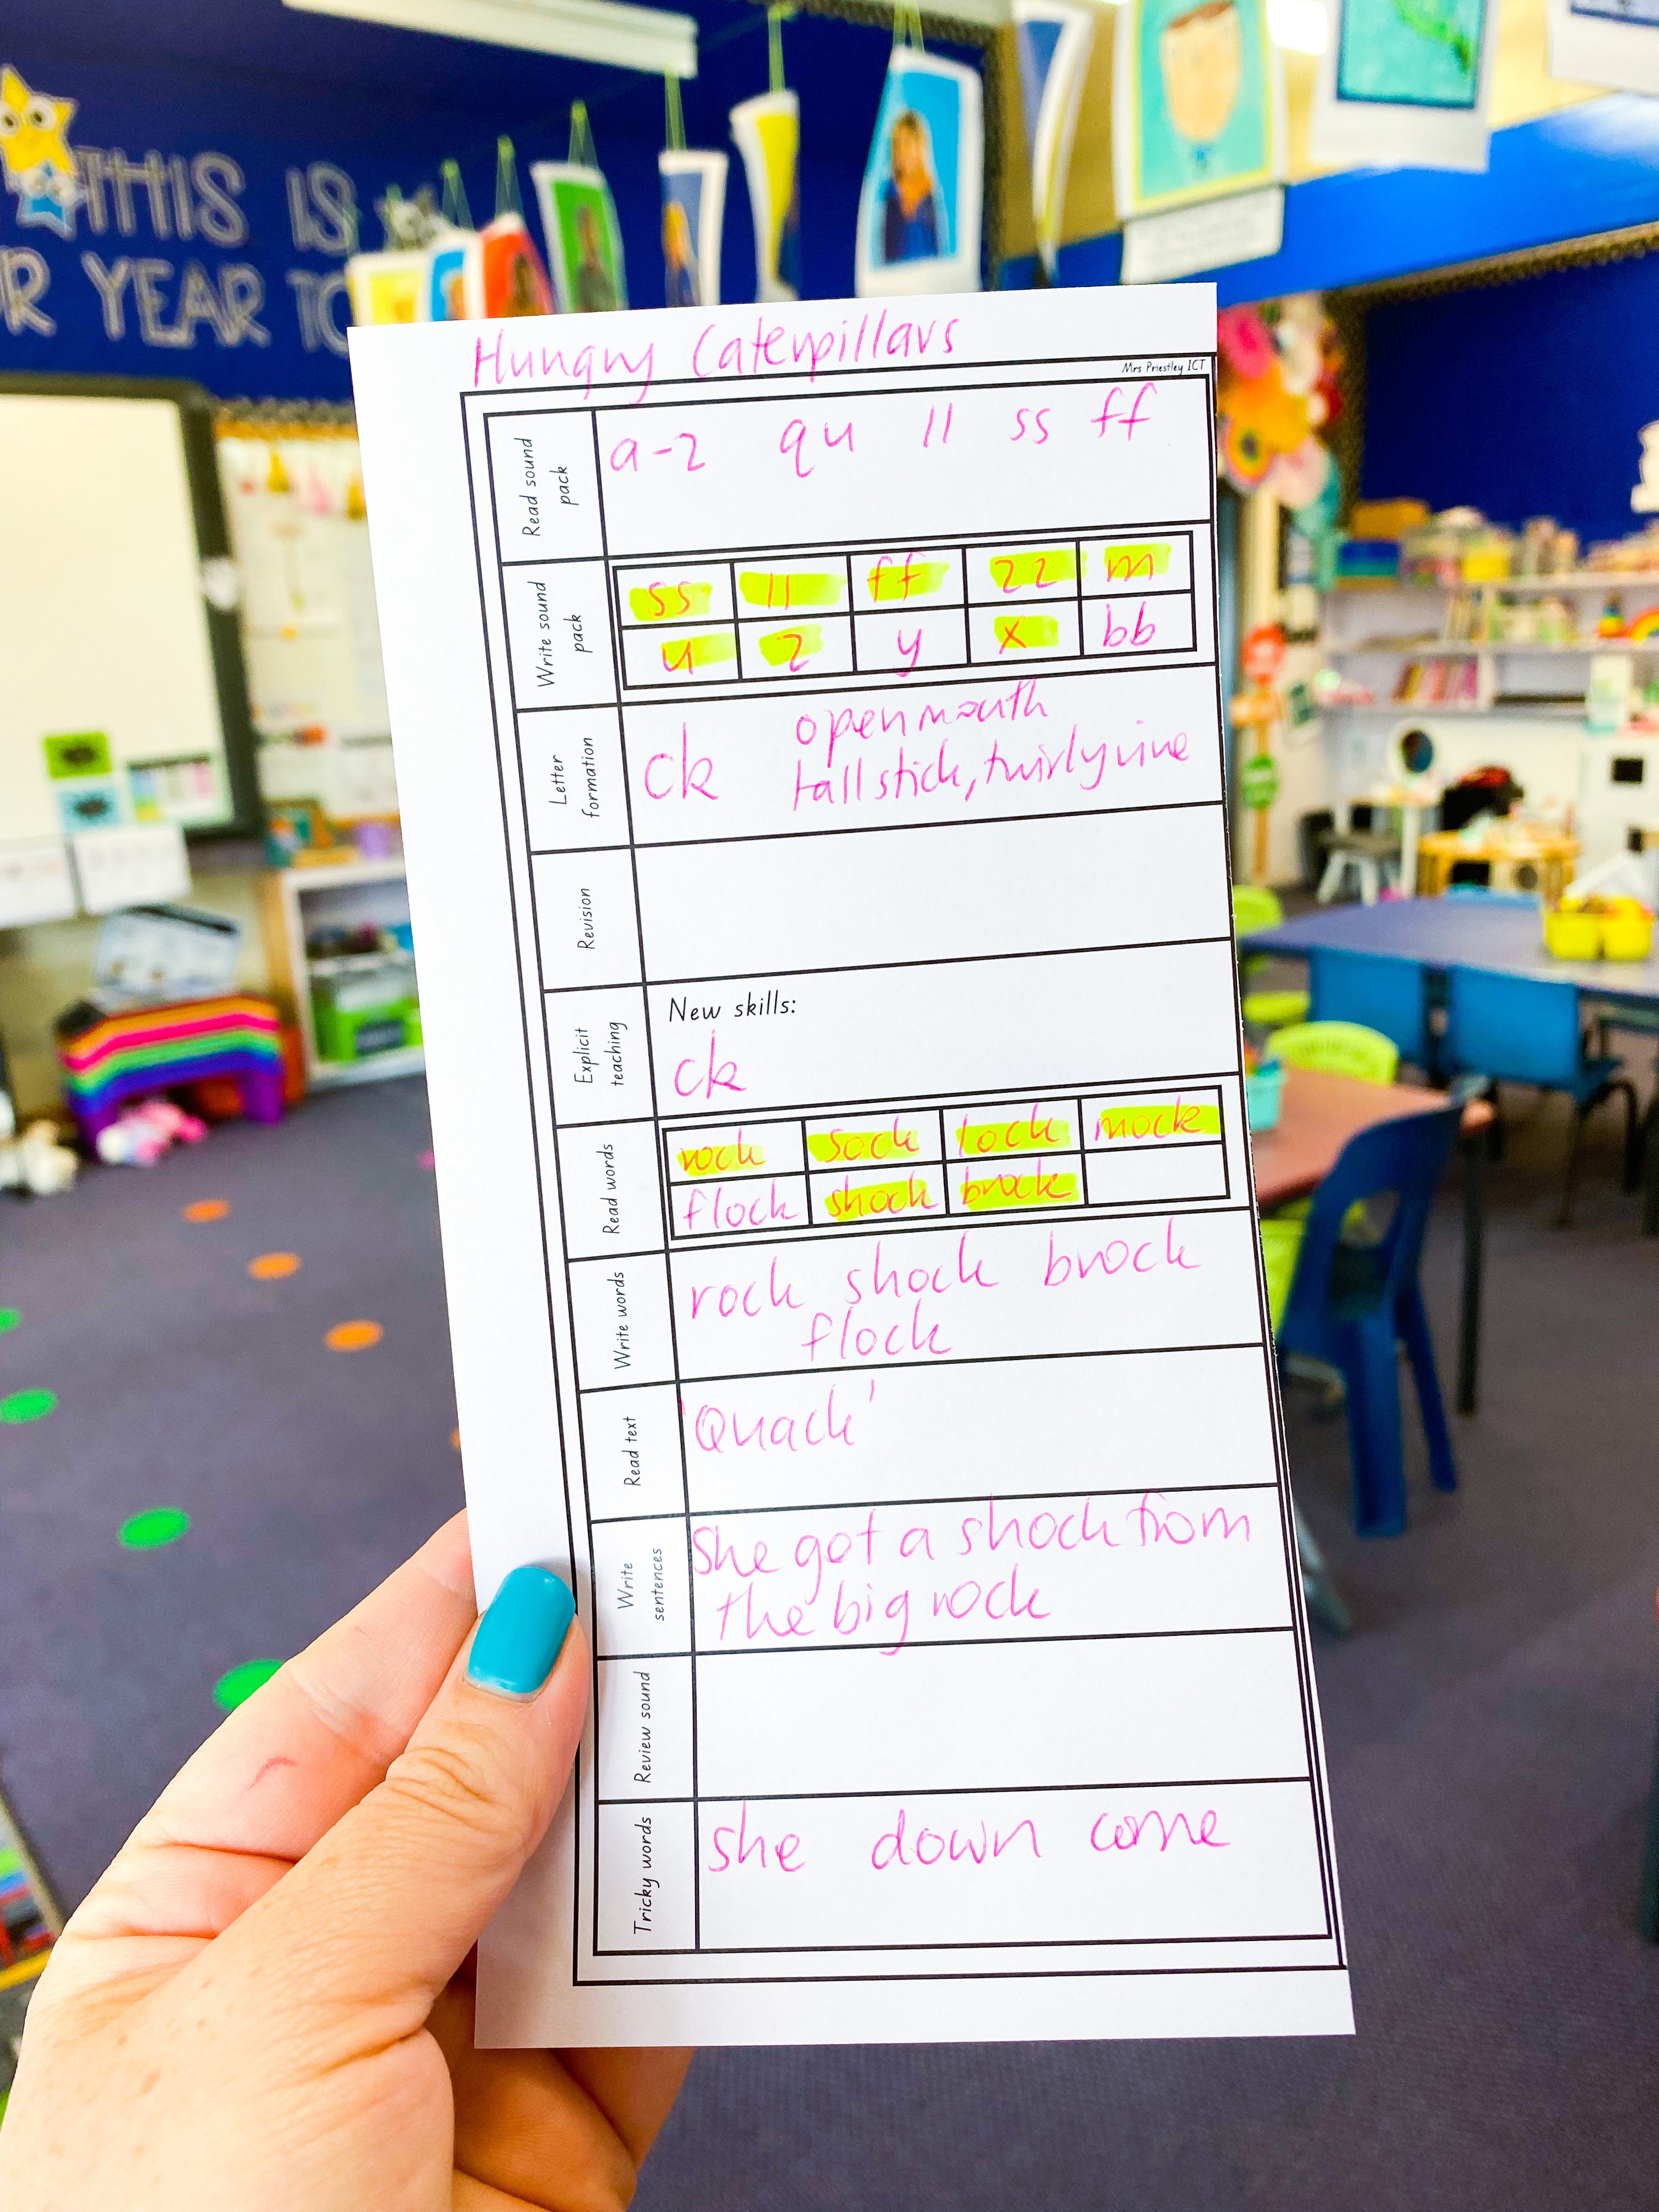 THIS IS
R YEAR TO
Hungry Caterpillars
Mrs Priestley ICT
Read sound pack
a-z qu ll ss ff
Write sound pack
ss ll ff zz m
u z y x bb
Letter formation
ck open mouth
tall stick, twirly vine
Revision
Explicit teaching
New skills:
ck
Read words
rock sock lock mock
flock shock brock
Write words
rock shock brock
flock
Read text
'Quack'
Write sentences
She got a shock from
the big rock
Review sound
Tricky words
she down come